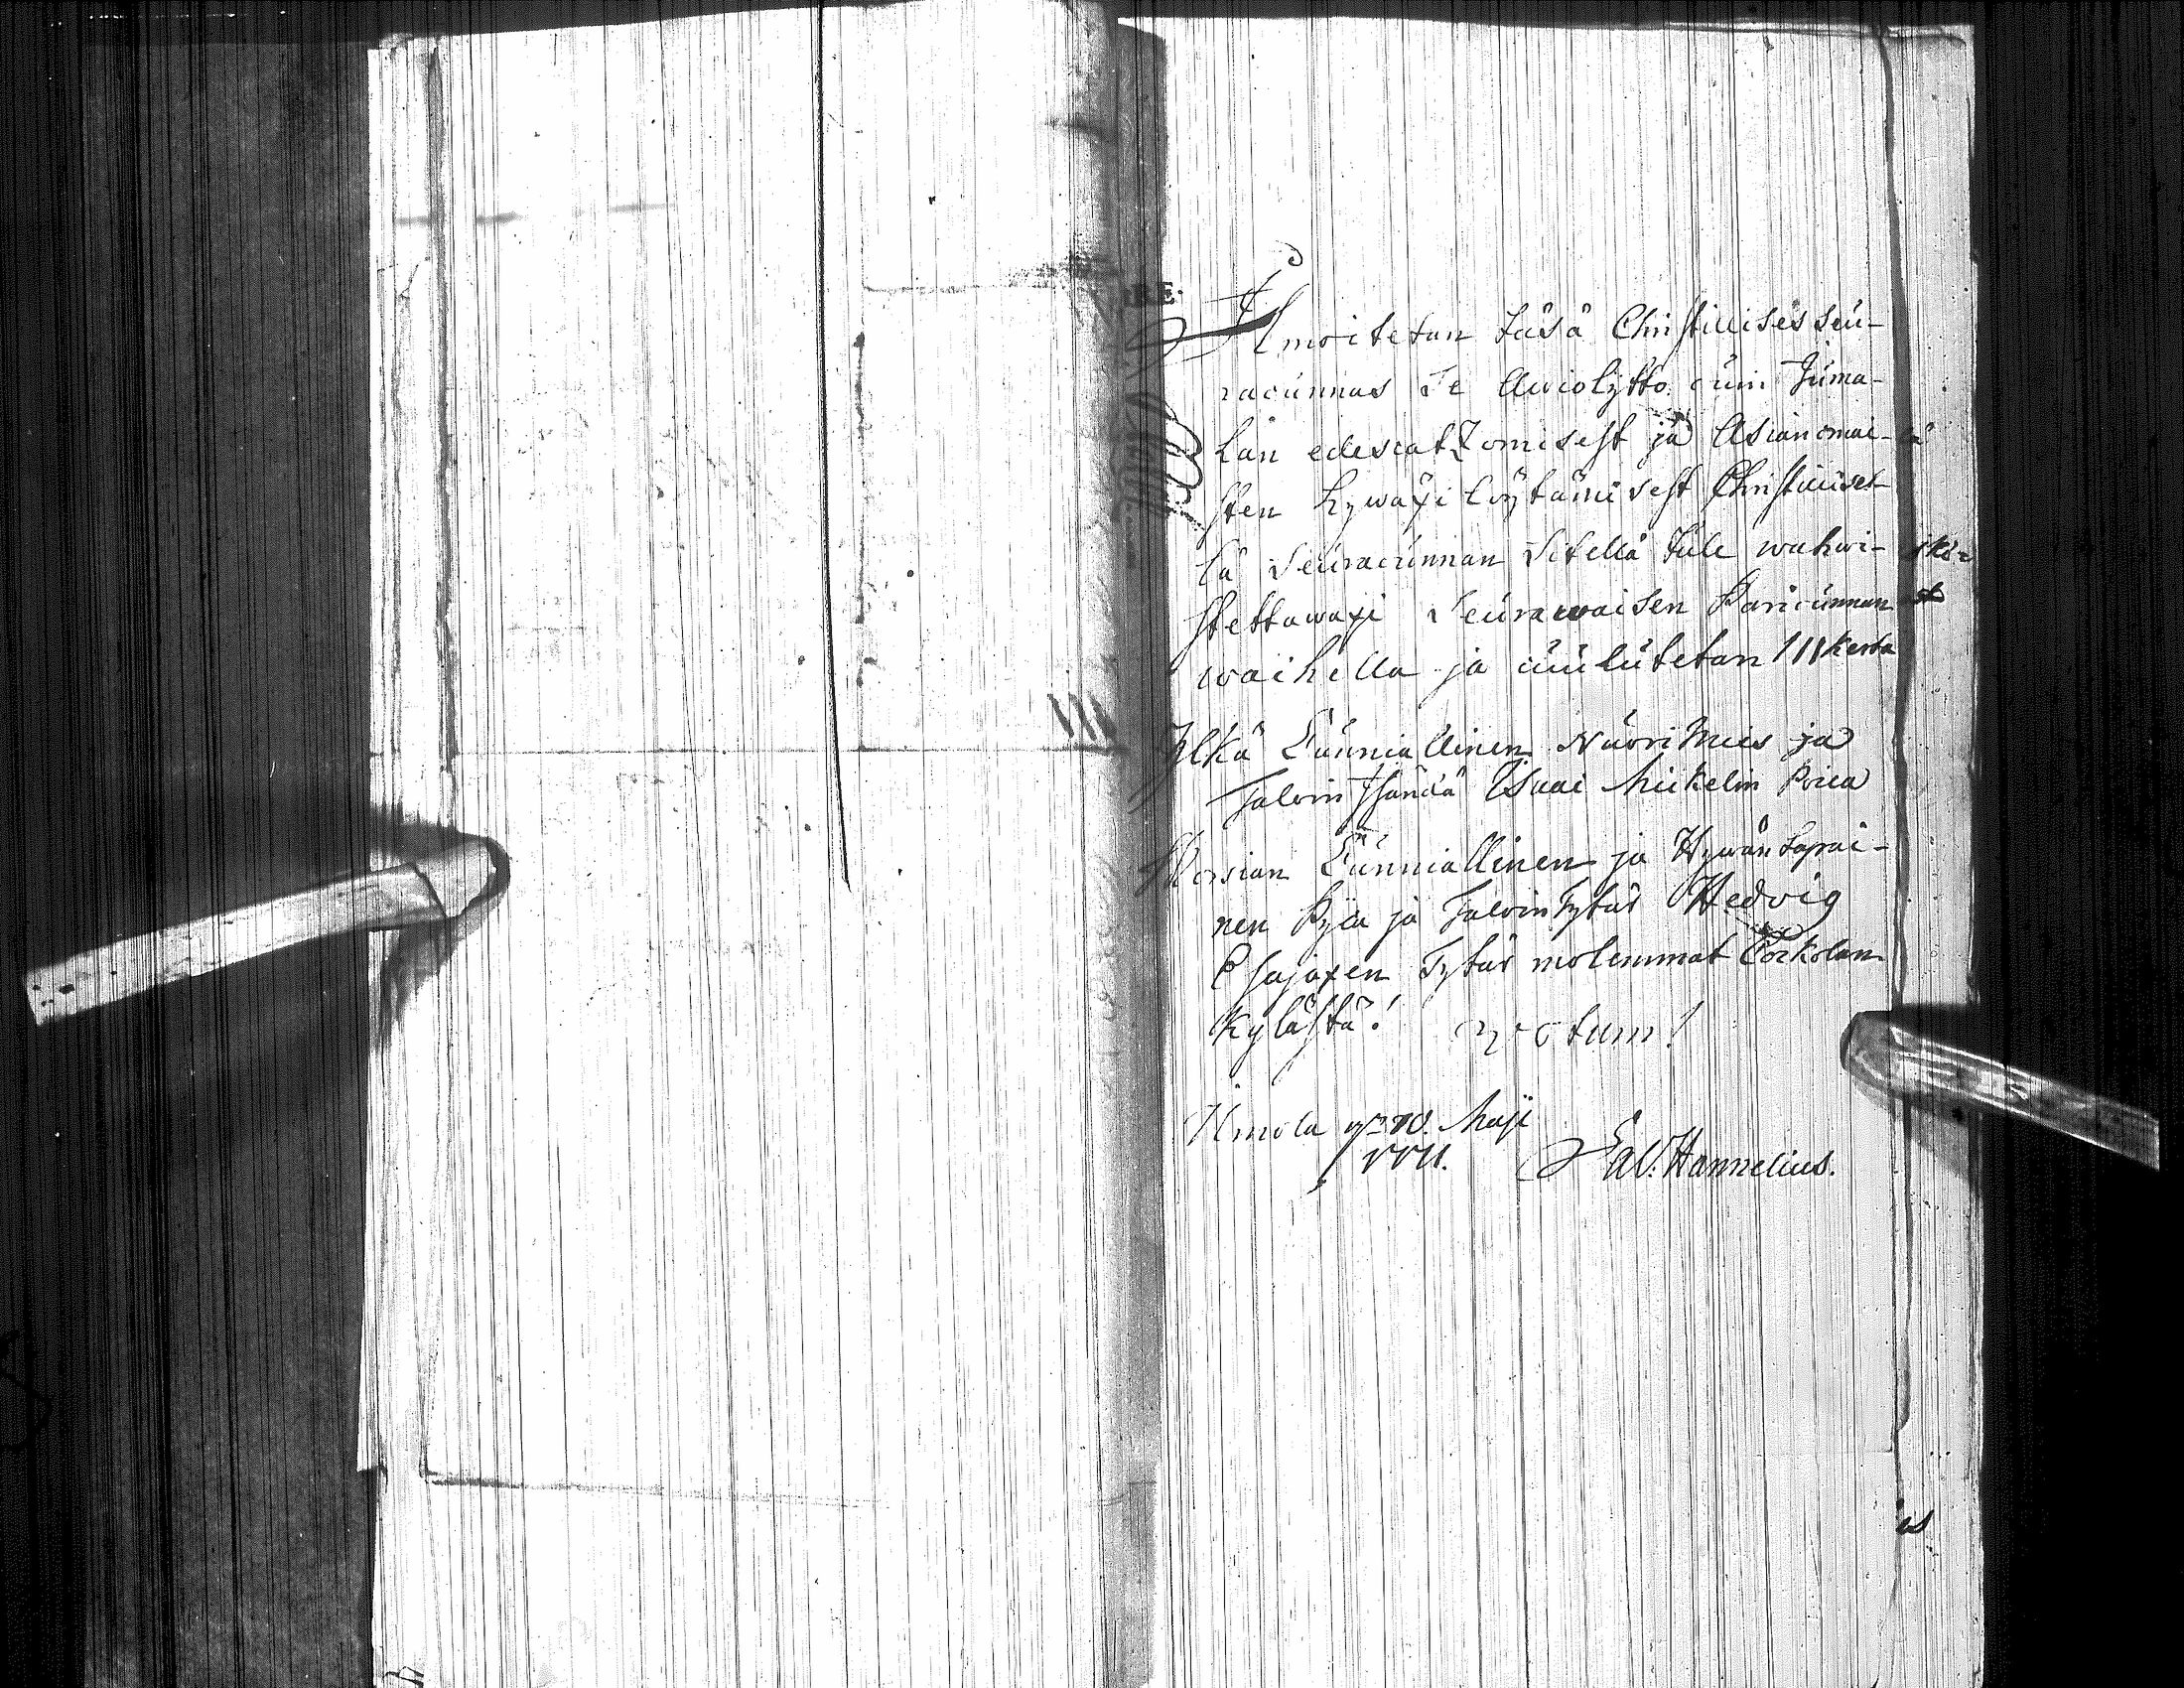 Ilmoitetan täsä Christillises seu-
racunnas Se Awiolijtto cuin Juma-
lan edescatzomisest ja Asianomai-
sten hywäxi löytämisest Christillisel-
lä Seuracunnan Sitellä tule wahwi-
stettawaxi Seurawaisen Paricunnan
waihella ja cuulutetan III kerta
III
Ylkä Cunniallinen Nuori Mies ja
Talon Isändä Isaac Mickelin Poica
Morsian Cunniallinen ja Hywän tapai-
nen Pijca ja Talon Tytär Hedvig
Esajaxen Tytär molemmat Corkolan
Kylästä! Votum!
Ilmola Maji
Sal. Hannelius.